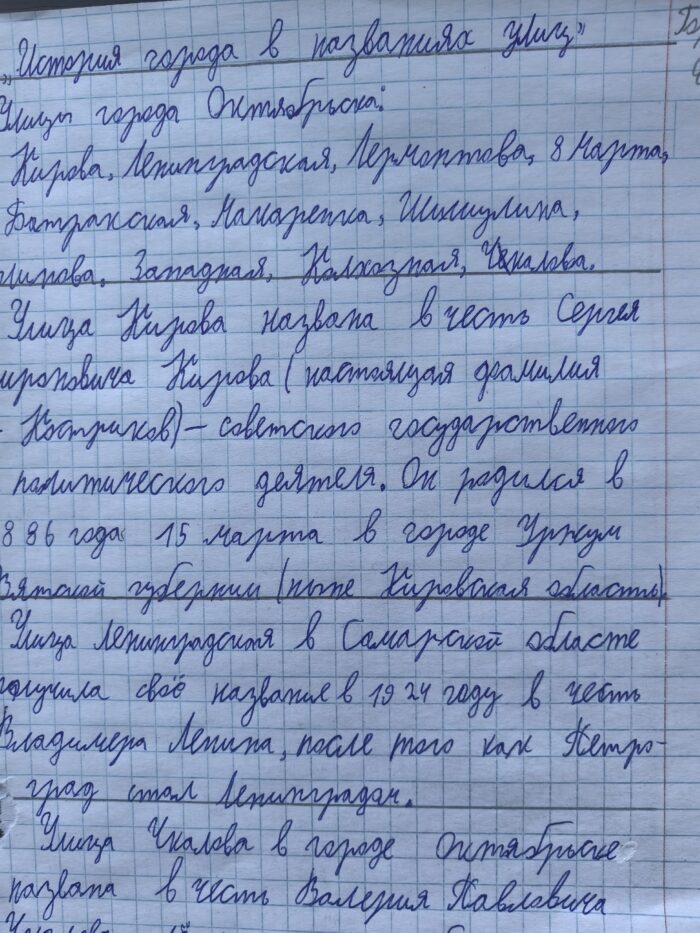 "История города в названиях улиц"
Улицы города Октябрьска:
Кирова, Ленинградская, Лермонтова, 8 Марта,
Батракская, Макаренка, Шишулина,
Западная, Колхозная, Чкалова.
Улица Кирова названа в честь Сергея
ироновича Кирова (настоящая фамилия
- Костриков) – советского государственного
политического деятеля. Он родился в
886 года 15 марта в городе Уржум
Вятской губернии (ныне Кировская область)
Улица Ленинградская в Самарской областе
получила своё название в 1924 году в честь
Владимера Ленина, после того как Петро-
град стал Ленинградом.
Улица Чкалова в городе Октябрьске
названа в честь Валерия Павловича